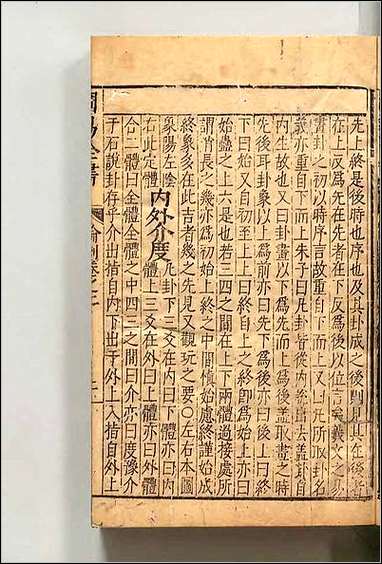 先上終是後時也序也及其卦成之後則見其在後者
在上反爲先在先者在下反爲後以位言義文之
畫卦之初以時序言故重自下而上又曰凡所取卦名
義亦重自下而上朱子曰凡卦皆從內
內生故也又曰卦畫以下爲先而上爲後蓋取畫之時
先後耳卦象以上爲前亦曰先下爲後亦曰後上曰終
下曰始又自初至上上曰終自上之終即爲始上亦曰
始蠱之上六是也若三四之間在上下兩體過接處所
謂消長之幾亦爲初始上終之中間慎始處終謹始成
終象亥在此吉者幾之先見又觀玩之要○左右本圖
象陽左陰
內外介度
凡卦下三爻在內曰下體亦曰內
體上三爻在外曰上體亦曰外體
右此定體
合二體曰全體全體之中四三之間曰介亦曰度豫介
于石說卦存乎介出指自內下出于外上入指自外上
周易全書
論例卷之二